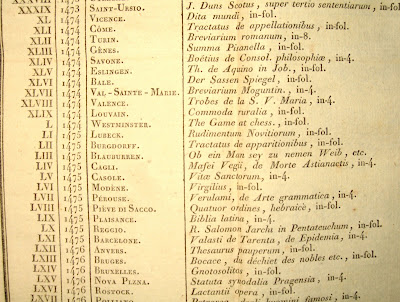 XXXVIII 1473
XXXIX 1473 SAINT-URSIO. J. Duns Scotus, super tertio sententiarum, in-fol.
XL 1474 VICENCE. Dita mundi, in-fol.
XLI 1474 CÔME. Tractatus de appellationibus, in-fol.
XLII 1474 TURIN. Breviarium romanum, in-8.
XLIII 1474 GÊNES. Summa Pisanella, in-fol.
XLIV 1474 SAVONE. Boëtius de Consol. philosophiæ, in-4.
XLV 1474 ESLINGEN. Th. de Aquino in Job., in-fol.
XLVI 1474 BALE. Der Sassen Spiegel, in-fol.
XLVII 1474 VAL-SAINTE-MARIE. Breviarium Moguntin., in-4.
XLVIII 1474 VALENCE. Trobes de la S. V. Maria, in-4.
XLIX 1474 LOUVAIN. Commoda ruralia, in-fol.
L 1474 WESTMINSTER. The Game at chess., in-fol.
LI 1475 LUBECK. Rudimentum Novitiorum, in-fol.
LII 1475 BURGDORFF. Tractatus de apparitionibus, in-fol.
LIII 1475 BLAUBURREN. Ob ein Man sey zu nemen Weib, etc.
LIV 1475 CAGLI. Mafei Vegii, de Morte Astianactis, in-4.
LV 1475 CASOLE. Vitæ Sanctorum, in-4.
LVI 1475 MODÈNE. Virgilius, in-fol.
LVII 1475 PÉROUSE. Verulami, de Arte grammatica, in-4.
LVIII 1475 PIÈVE DI SACCO. Quatuor ordines, hebraïcè, in-fol.
LIX 1475 PLAISANCE. Biblia latina, in-4.
LX 1475 REGGIO. R. Salomon Jarchi in Pentateuchum, in-fol.
LXI 1475 BARCELONE. Valasti de Tarenta, de Epidemia, in-4.
LXII 1476 ANVERS. Thesaurus pauperum, in-fol.
LXIII 1476 BRUGES. Bocace, du déchiet des nobles etc., in-fol.
LXIV 1476 BRUXELLES. Gnotosolitos, in-fol.
LXV 1476 NOVA PLZNA. Statuta synodalia Pragensia, in-4.
LXVI 1476 ROSTOCK. Lactantii opera, in-fol.
LXVII in-4.